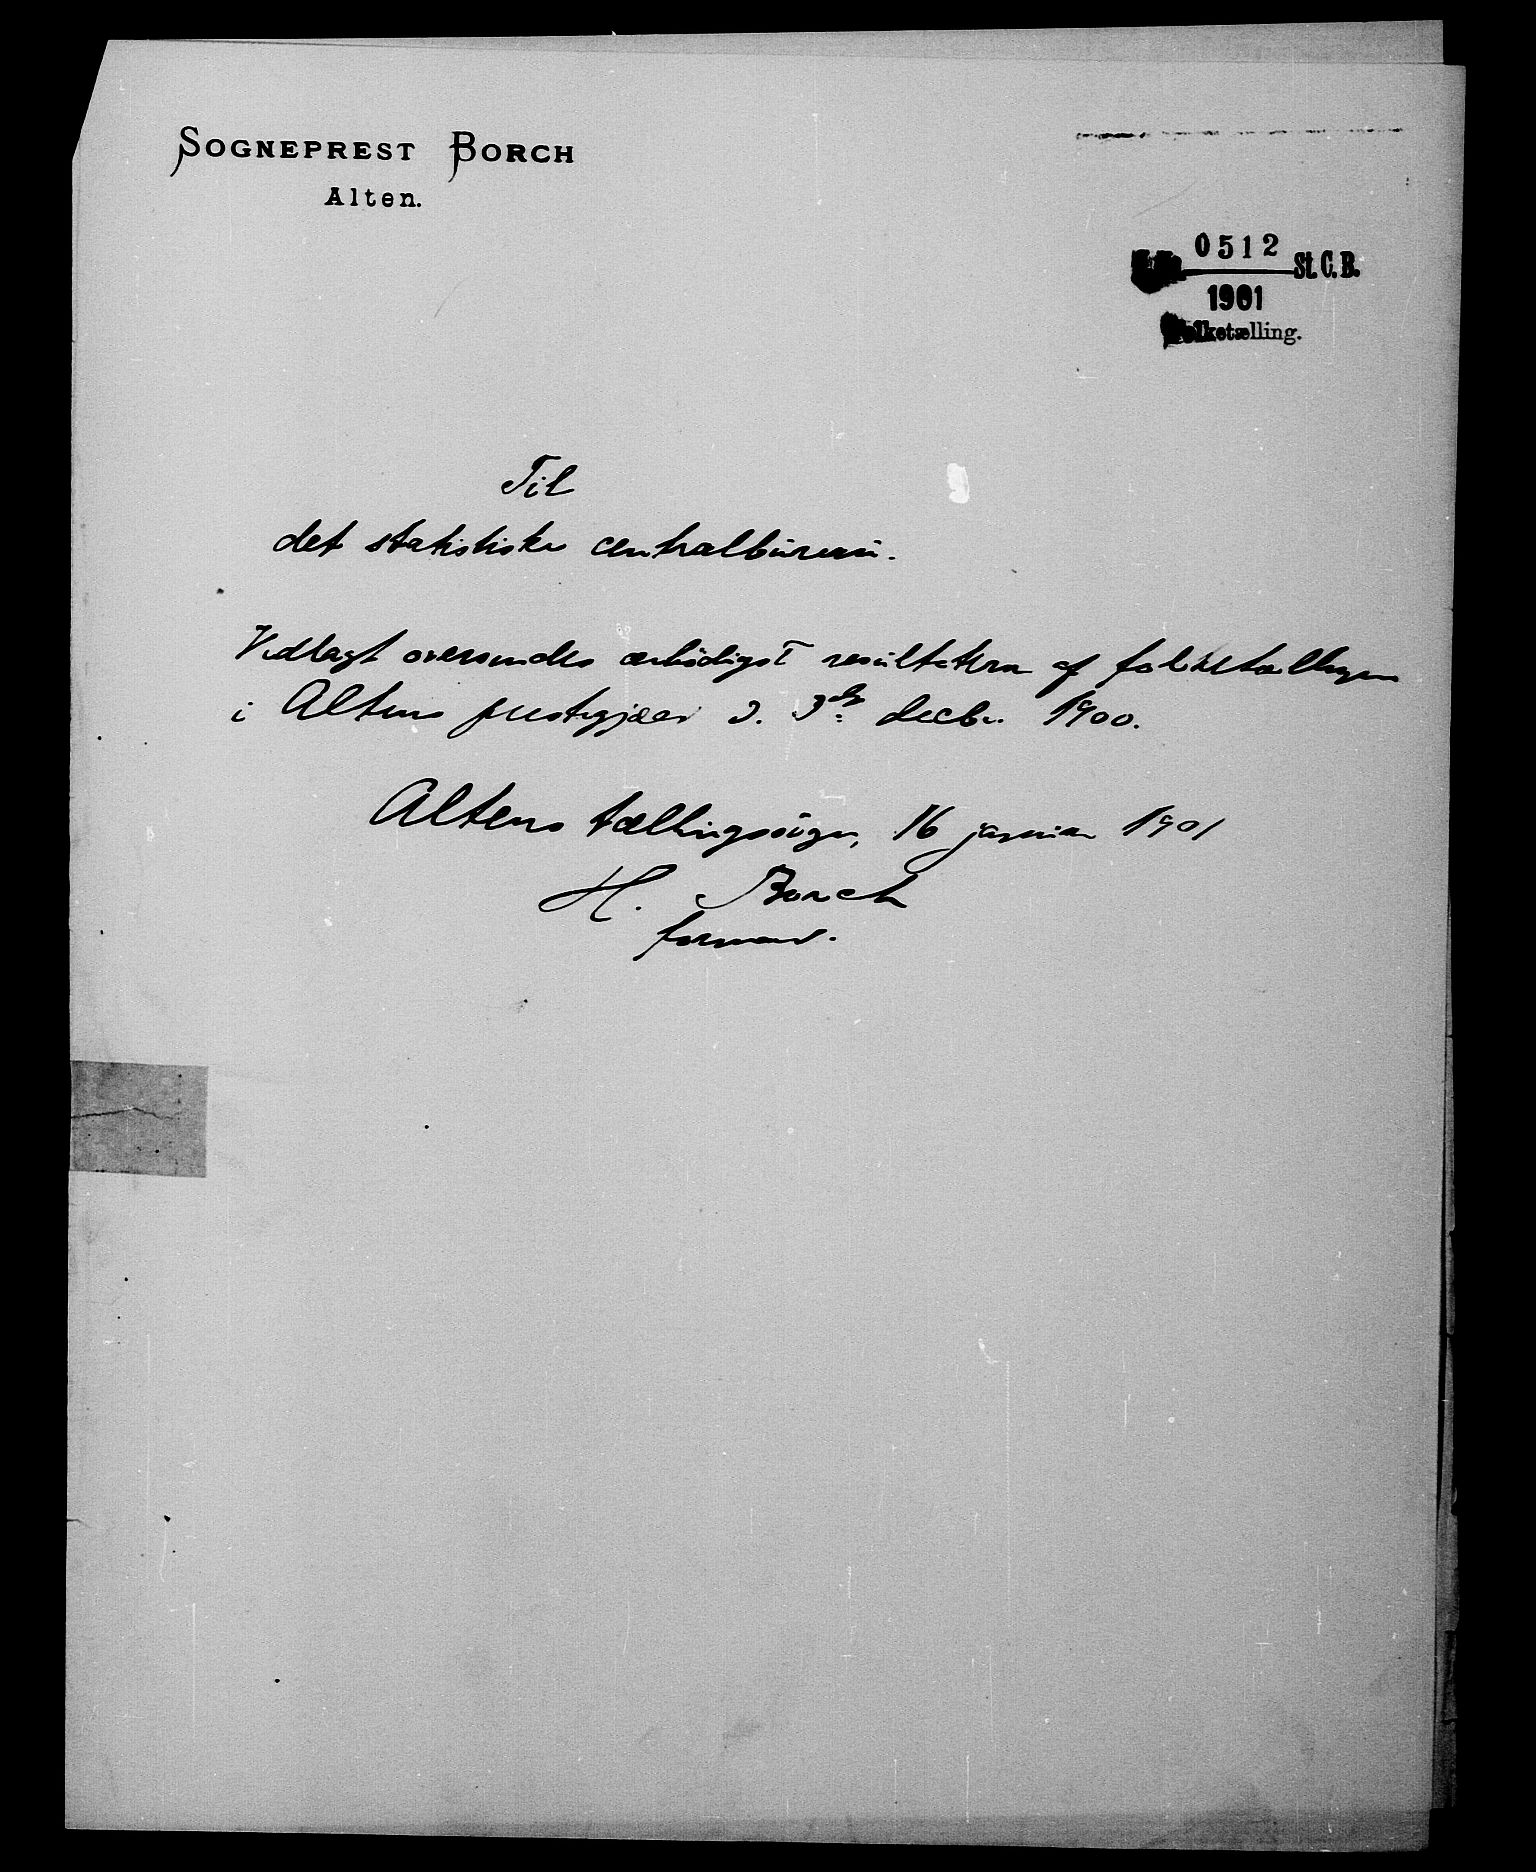 SOGNEPREST BORCH
Alten.
0512
St. C. B.
1901
Folketælling.
Til
det statistiske centralbureau.
Vedlagt oversendes ærbödigst resultaterne af folketællingen
i Altens prestegjæld d. 3de decbr. 1900.
Altens tællingssogn, 16 januar 1901
H. Borch
formand.